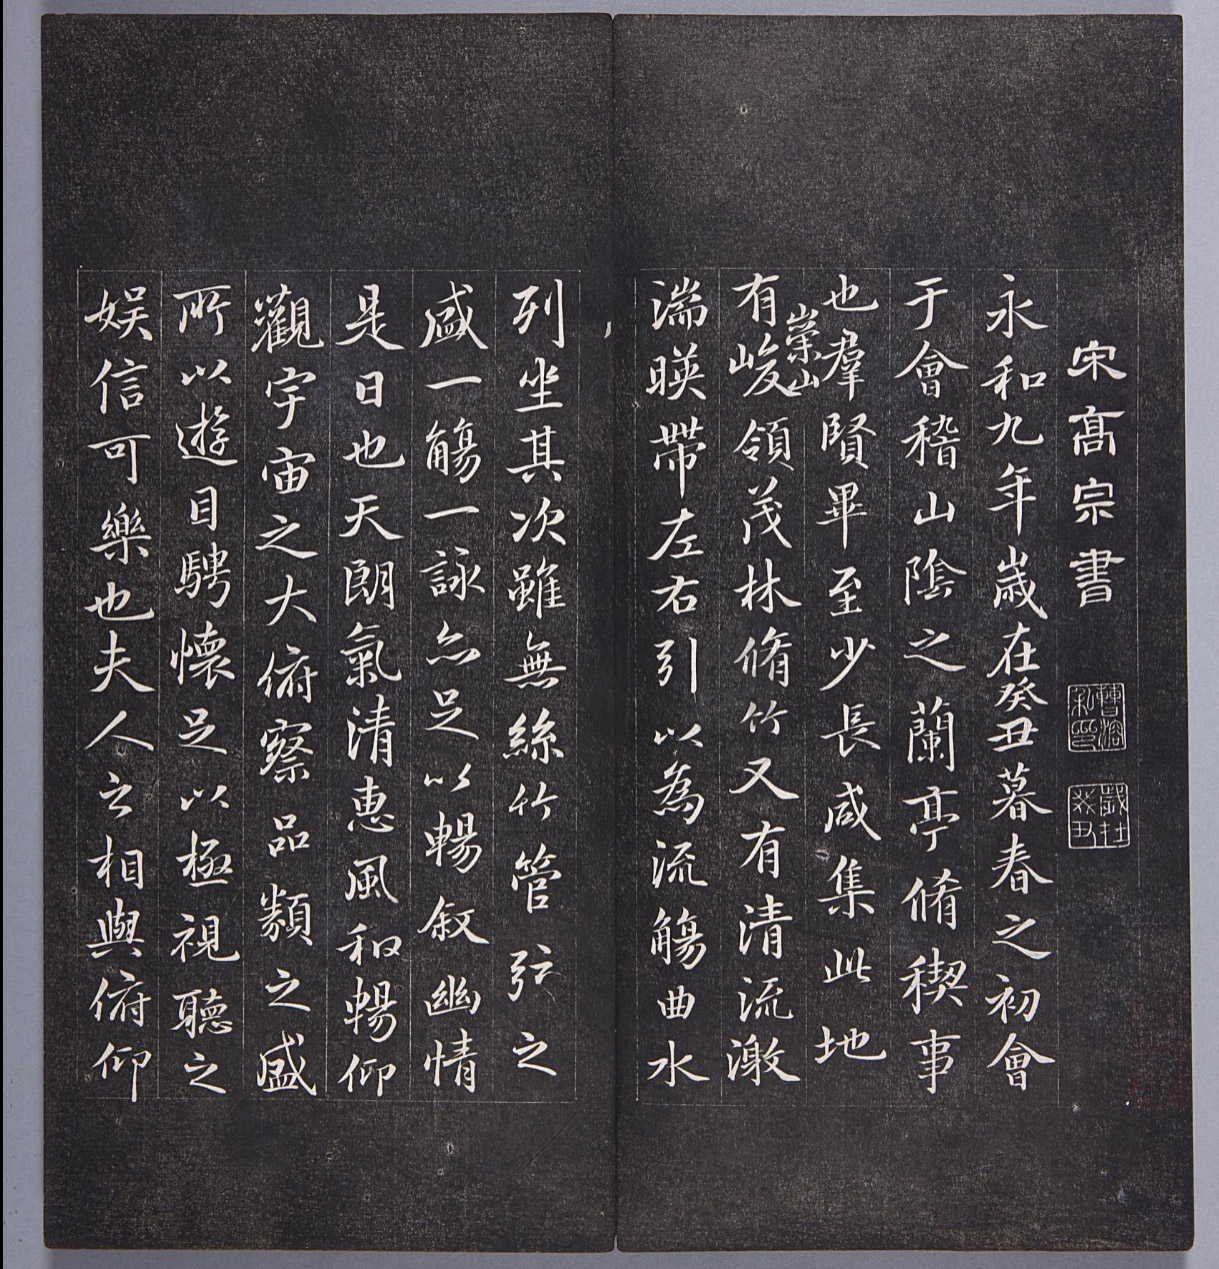 宋高宗書
曹溶私印
歲在癸丑
永和九年歲在癸丑暮春之初會
于會稽山陰之蘭亭脩稧事
也羣賢畢至少長咸集此地
崇山
有峻領茂林脩竹又有清流激
湍暎帶左右引以為流觴曲水
列坐其次雖無絲竹管弦之
盛一觴一詠亦足以暢敘幽情
是日也天朗氣清惠風和暢仰
觀宇宙之大俯察品類之盛
所以遊目騁懷足以極視聽之
娛信可樂也夫人之相與俯仰